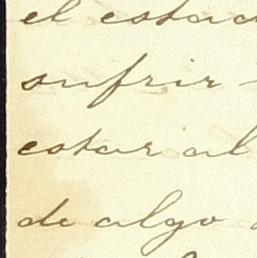 el estad
sufrir
estar al
de algo